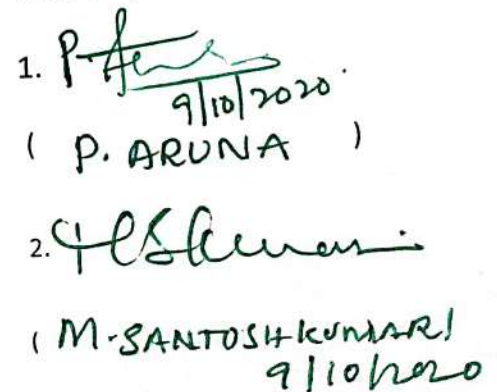 1. P
9/10/2020.
( P. ARUNA )
2.
( M. SANTOSH KUMARI
9/10/2020